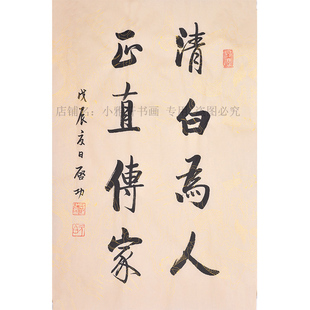 清白为人
正直傳家
戊辰夏日启功
店铺名:小雅
书画 专
盗图必究